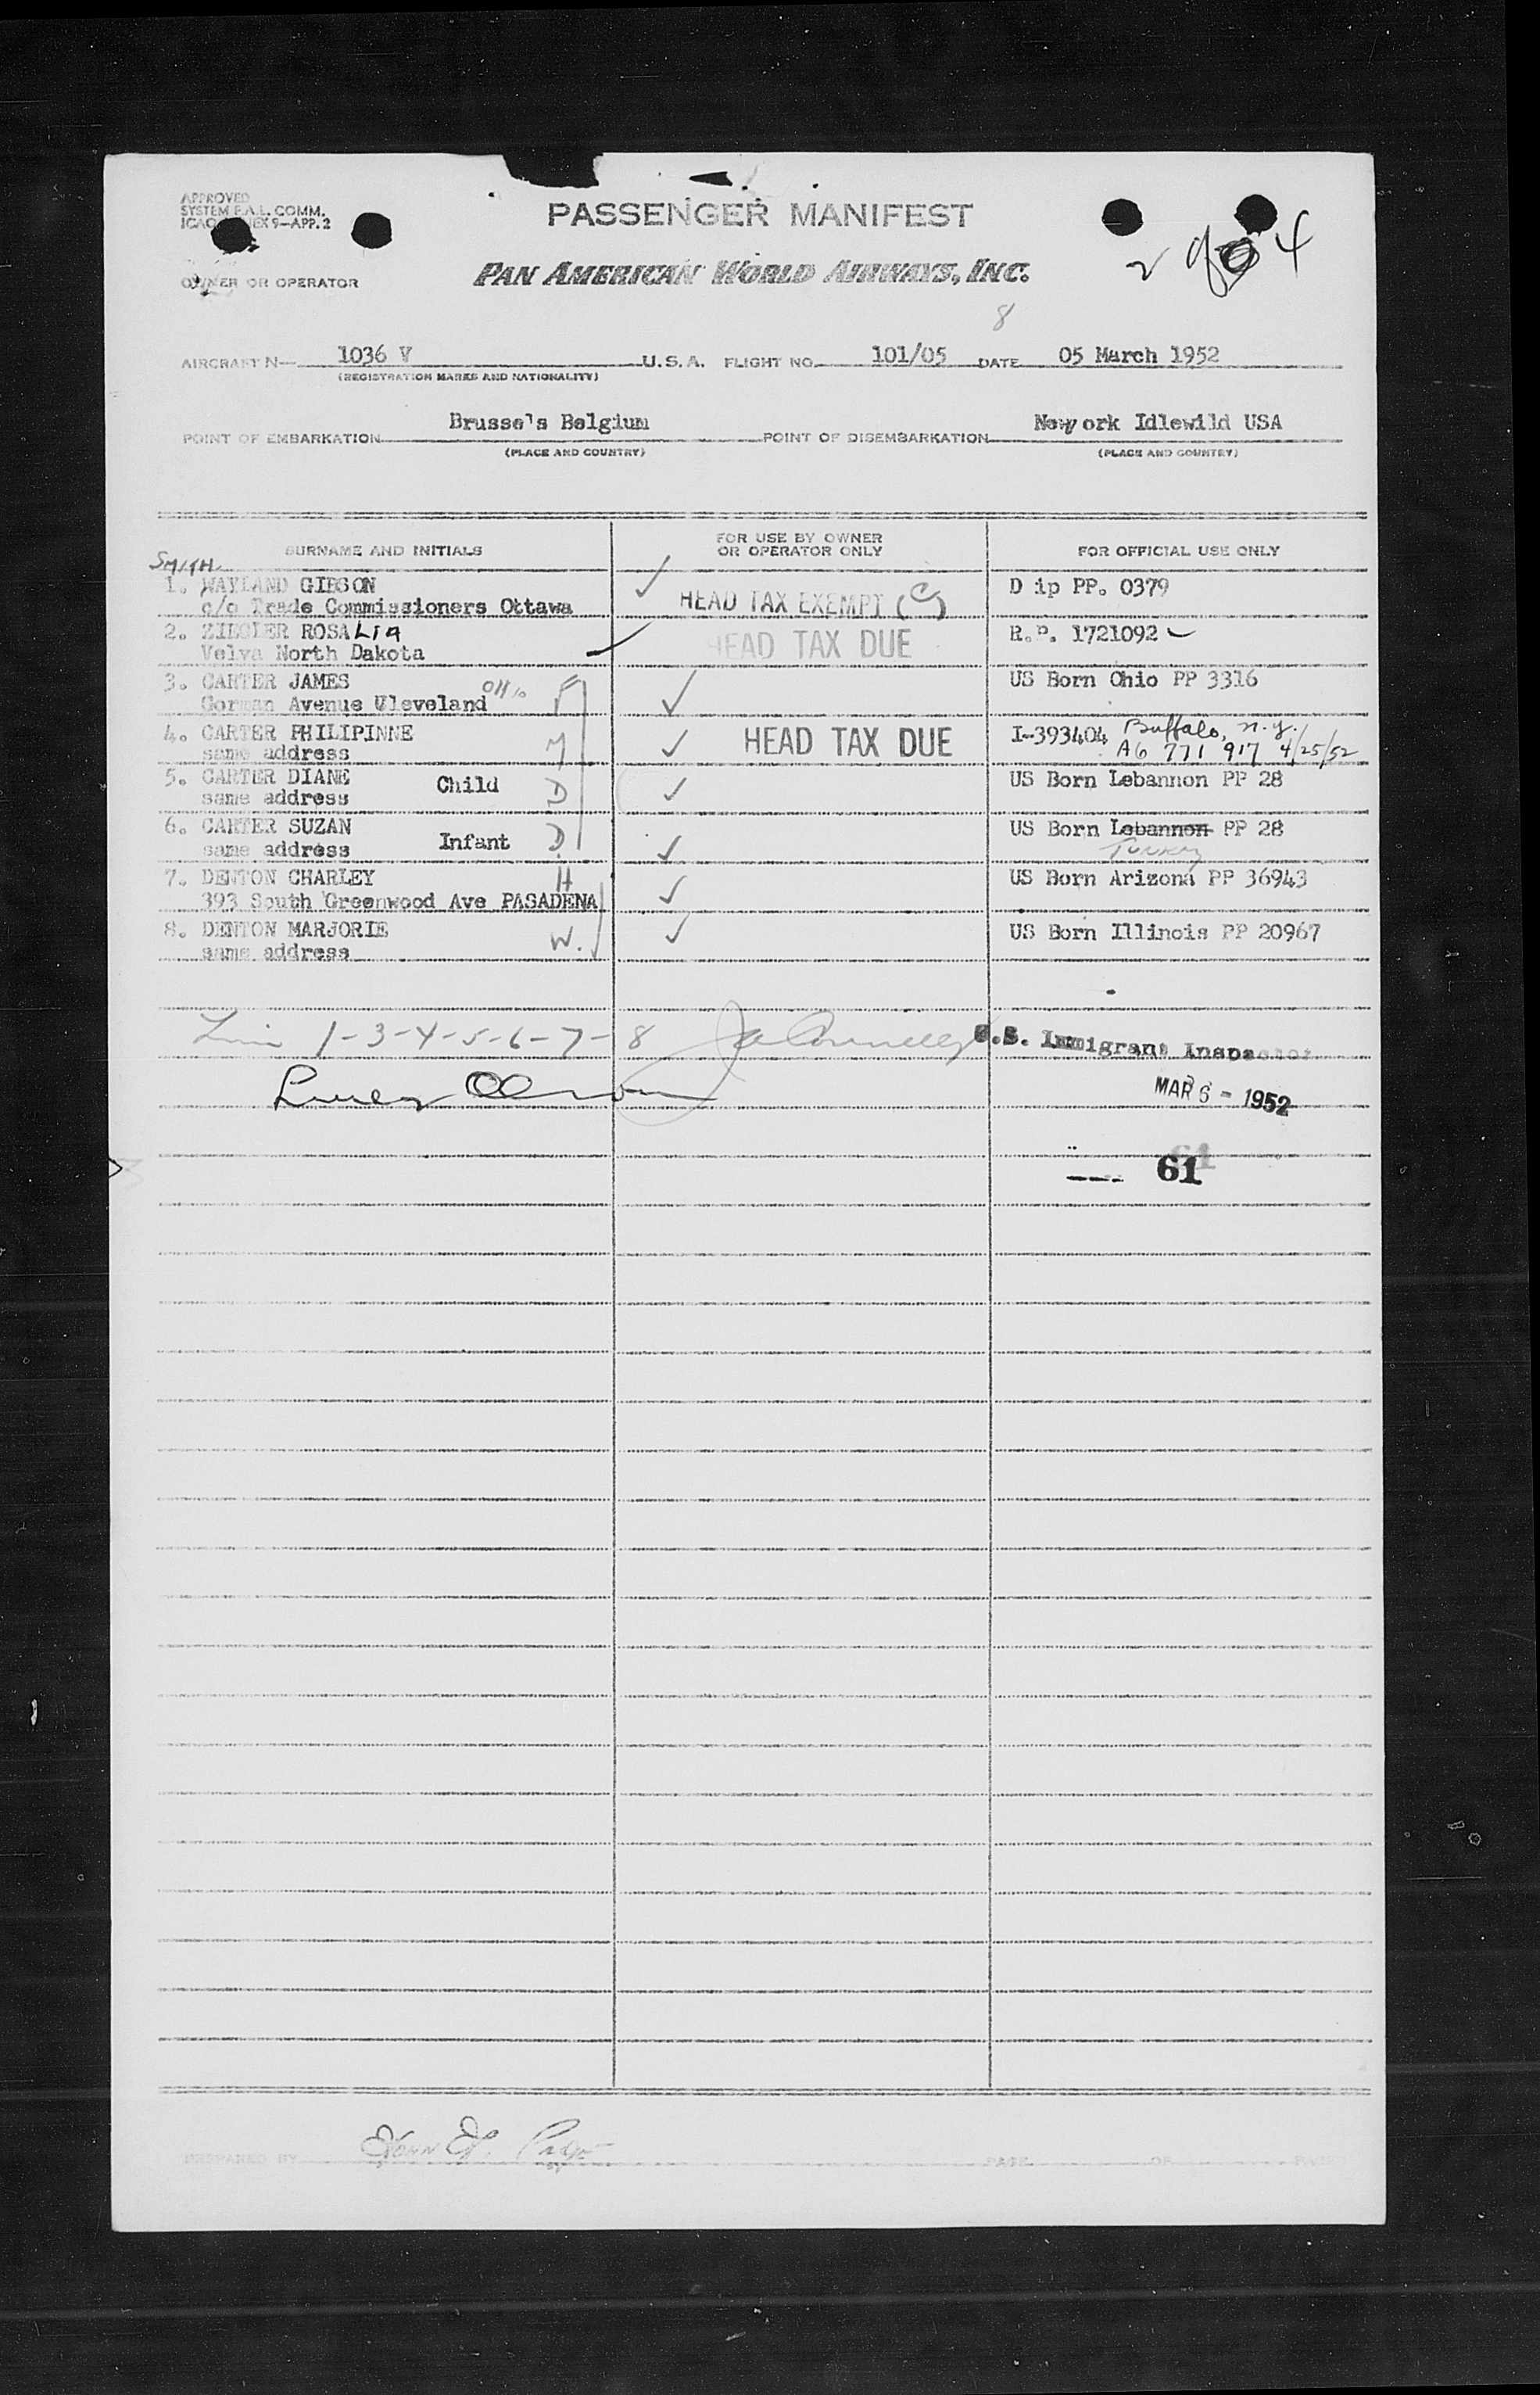 APPROVED
SYSTEM F.A.L. COMM.
ICAO ANNEX 9—APP. 2
PASSENGER MANIFEST
OWNER OR OPERATOR
PAN AMERICAN WORLD AIRWAYS, INC.
8
AIRCRAFT N— 1036 V U. S. A. FLIGHT NO. 101/05 DATE 05 March 1952
(REGISTRATION MARKS AND NATIONALITY)
POINT OF EMBARKATION Brusse's Belgium POINT OF DISEMBARKATION Newyork Idlewild USA
(PLACE AND COUNTRY) (PLACE AND COUNTRY)
SURNAME AND INITIALS FOR USE BY OWNER OR OPERATOR ONLY FOR OFFICIAL USE ONLY
SMITH
1. WAYLAND GIBSON HEAD TAX EXEMPT (C) D ip PP. 0379
c/o Trade Commissioners Ottawa
2. ZIEGLER ROSALIA HEAD TAX DUE R.P. 1721092
Velva North Dakota
3. CARTER JAMES F US Born Ohio PP 3316
Gorman Avenue Cleveland Ohio
4. CARTER PHILIPINNE M HEAD TAX DUE I-393404 Buffalo, N.Y.
same address A6 771 917 4/25/52
5. CARTER DIANE Child D US Born Lebannon PP 28
same address
6. CARTER SUZAN Infant D. US Born Lebannon PP 28
same address Turkey
7. DENTON CHARLEY H US Born Arizona PP 36943
393 South Greenwood Ave PASADENA
8. DENTON MARJORIE W. US Born Illinois PP 20967
same address
1-3-4-5-6-7-8 U.S. Immigrant Inspector
MAR 6 - 1952
61
PREPARED BY PAGE OF PAGES